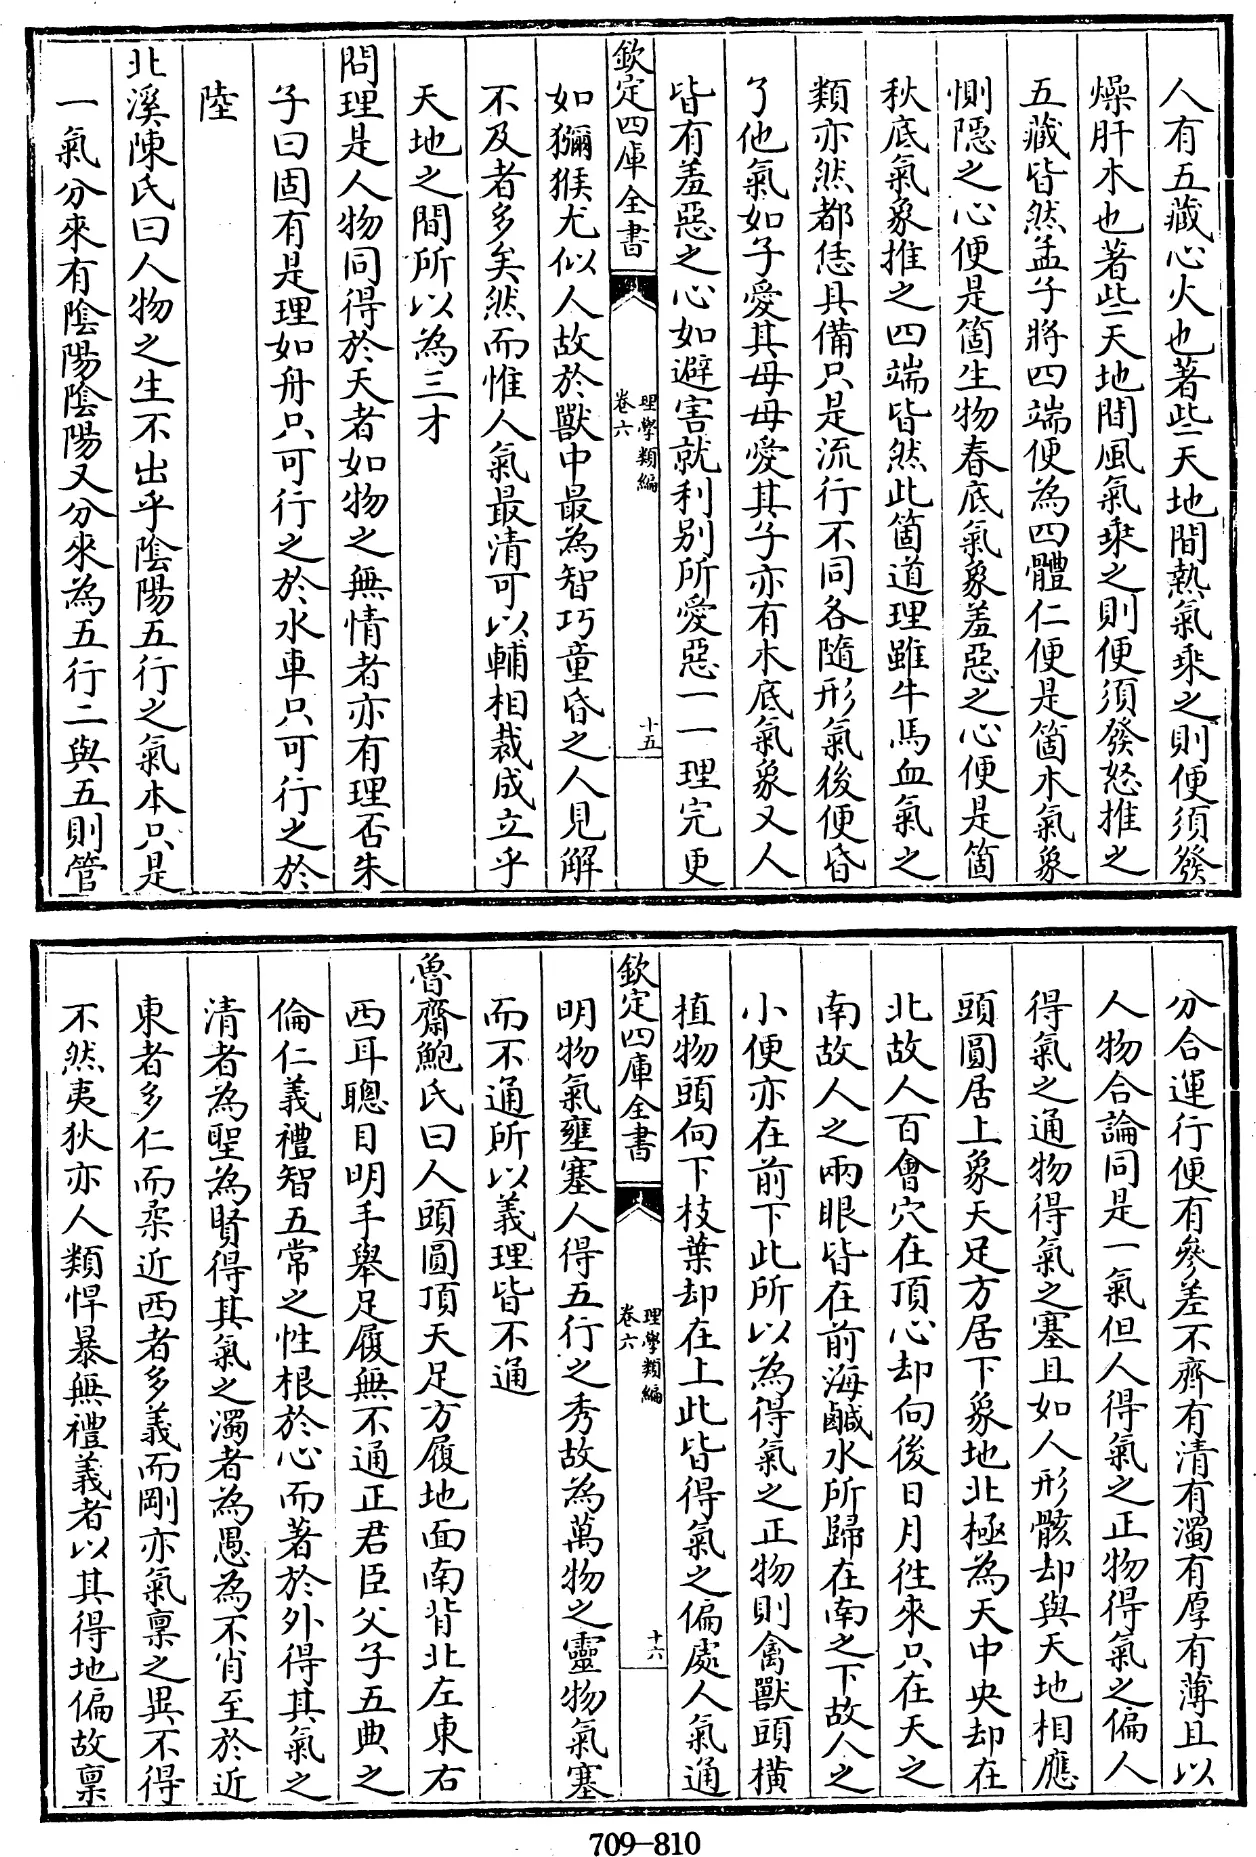 人有五藏心火也著些天地間熱氣乗之則便須發
燥肝木也著些天地間風氣乗之則便須發怒推之
五藏皆然孟子將四端便為四體仁便是箇木氣象
惻隱之心便是箇生物春底氣象羞惡之心便是箇
秋底氣象推之四端皆然此箇道理雖牛馬血氣之
類亦然都恁具備只是流行不同各隨形氣後便昏
了他氣如子愛其母母愛其子亦有木底氣象又人
皆有羞惡之心如避害就利別所愛惡一一理完更
欽定四庫全書
理學類編
卷六
十五
如獼猴尤似人故於獸中最為智巧童昏之人見解
不及者多矣然而惟人氣最清可以輔相裁成立乎
天地之間所以為三才
問理是人物同得於天者如物之無情者亦有理否朱
子曰固有是理如舟只可行之於水車只可行之於
陸
北溪陳氏曰人物之生不出乎陰陽五行之氣本只是
一氣分來有陰陽陰陽又分來為五行二與五則管
分合運行便有參差不齊有清有濁有厚有薄且以
人物合論同是一氣但人得氣之正物得氣之偏人
得氣之通物得氣之塞且如人形骸却與天地相應
頭圓居上象天足方居下象地北極為天中央却在
北故人百會穴在頂心却向後日月徃來只在天之
南故人之兩眼皆在前海鹹水所歸在南之下故人之
小便亦在前下此所以為得氣之正物則禽獸頭橫
植物頭向下枝葉却在上此皆得氣之偏處人氣通
欽定四庫全書
理學類編
卷六
十六
明物氣壅塞人得五行之秀故為萬物之靈物氣塞
而不通所以義理皆不通
魯齋鮑氏曰人頭圓頂天足方履地面南背北左東右
西耳聰目明手舉足履無不通正君臣父子五典之
倫仁義禮智五常之性根於心而著於外得其氣之
清者為聖為賢得其氣之濁者為愚為不肖至於近
東者多仁而柔近西者多義而剛亦氣稟之異不得
不然夷狄亦人類悍暴無禮義者以其得地偏故稟
709-810